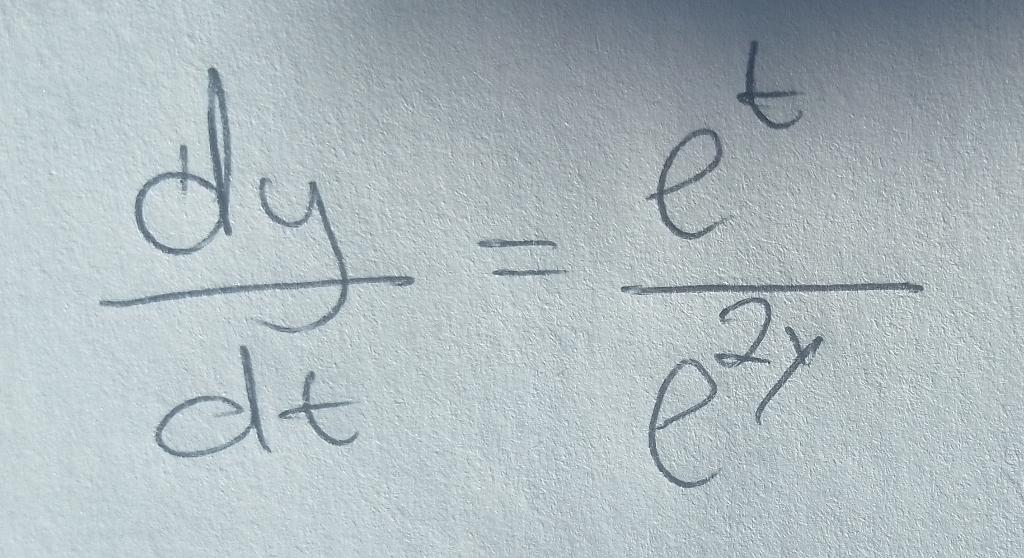 dy/dt = e^t/e^{2y}